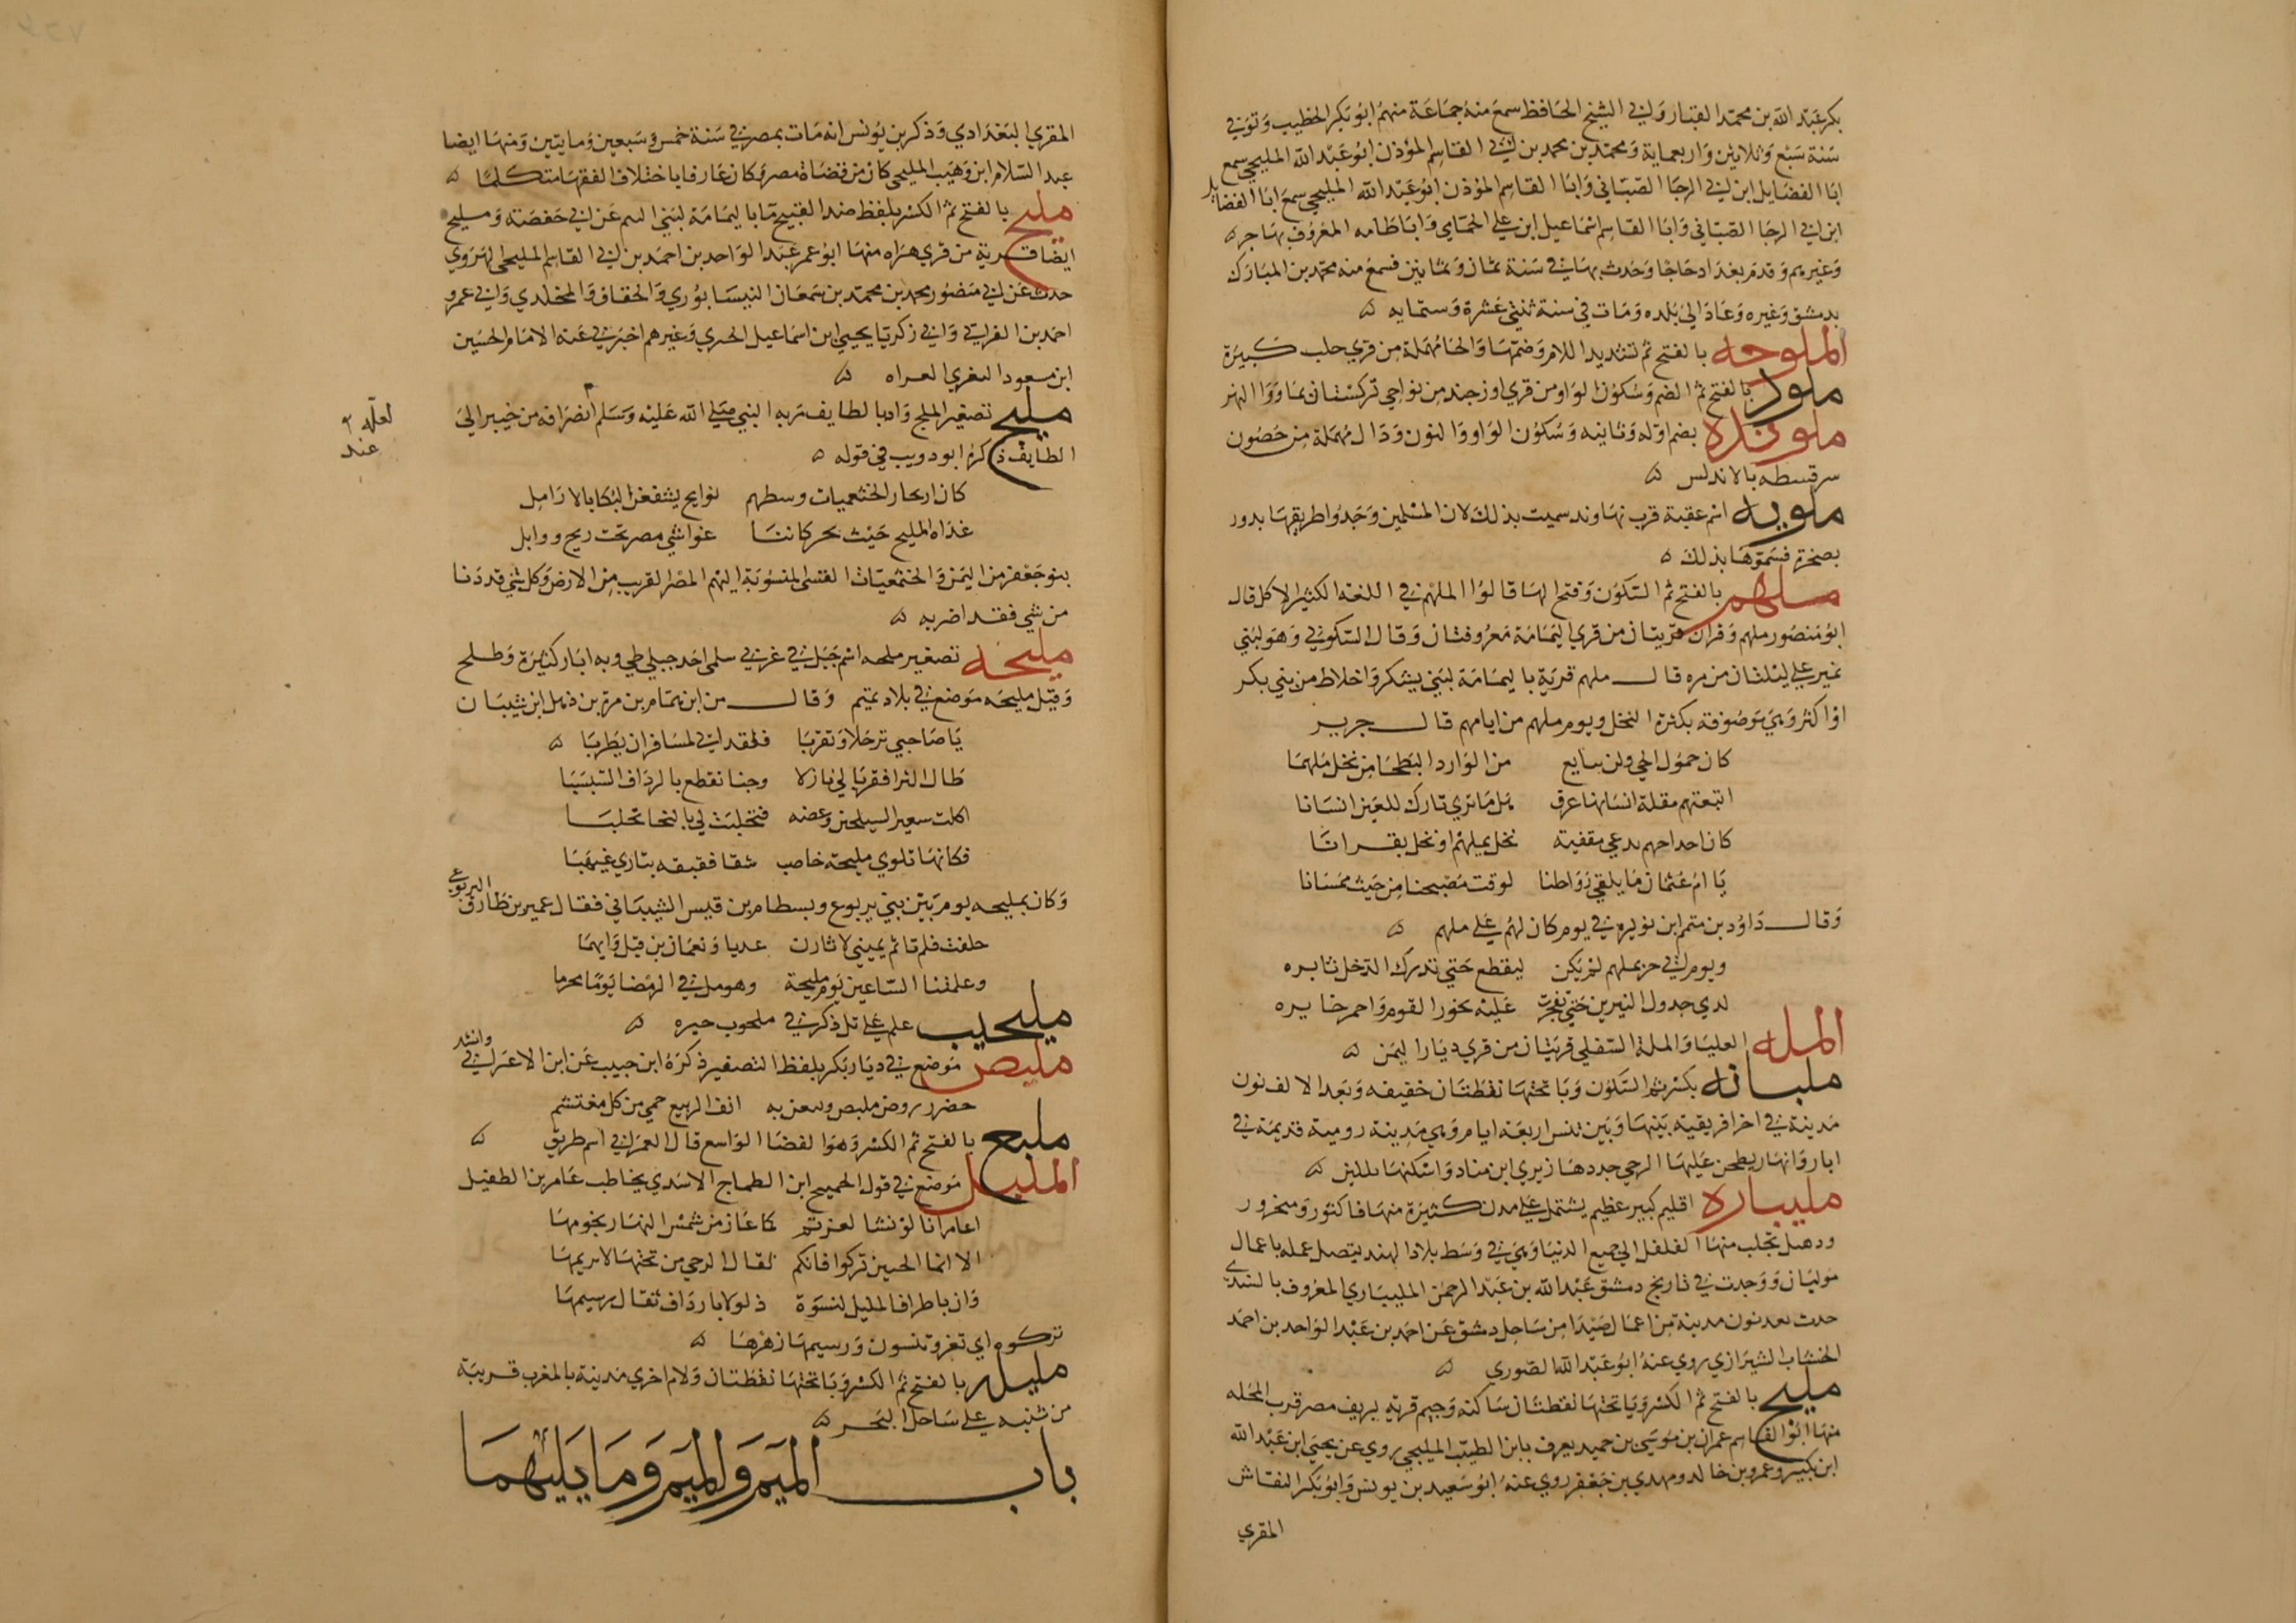 بكر عبد الله بن محمد القباز وابي الشيخ الحافظ سمع منه جماعة منهم ابو بكر الخطيب وتوفي
سنة سبع وثلاثين واربعماية ومحمد بن محمد بن ابي القاسم المؤذن ابو عبد الله المليحي سمع
ابا الفضايل ابن ابي الرجا الصبّاني وابا القاسم المؤذن ابو عبد الله المليحي سمع ابا الفضايل
ابن ابي الرجا الصبّاني وابا القاسم اسماعيل ابن علي الحمّامي وابا طاهر المعروف بهاجر
وغيرهم وقدم بغداد حاجا وحدث بها في سنة ثمان وثمانين فسمع منه محمد بن المبارك
بدمشق وغيره وعاد الى بلده ومات في سنة ثنتي عشرة وستمايه
الملوحه بالفتح ثم تشديد اللام وضمها والحا مهملة من قري حلب كبيرة
ملود بالفتح ثم الضم وسكون الواو من قري اوزجند من نواحي تركستان بما ورا النهر
ملونده بضم اوله وثانيه وسكون الواو والنون ودال مهملة من حصون
سرقسطه بالاندلس
ملويه اسم عقبة قرب نهاوند سميت بذلك لان المسلمين وجدوا طريقها بدور
بصخرة فسموها بذلك
ملهم بالفتح ثم السكون وفتح الها قالوا الملهم في اللغه الكثير الاكل قال
ابو منصور ملهم وقران قريتان من قري اليمامة معروفتان وقال السكوني وهو لبني
نمير علي ليلتان من مره قال ملهم قرية باليمامة لبني يشكر واخلاط من بني بكر
اواكثر وهي موصوفة بكثرة النخل ويوم ملهم من ايامهم قال جرير
كان حمول الحي ولن بيانع من الوارد البطحا من نخل ملهما
اتبعتهم مقلة انسانها غرق هل ما تري تارك للعين انسانا
كان احداجهم تدعي مقفية نخل بملهم او نخل بقرانا
يا ام عثمان ما يلقي رواطنا لوقت مصبحنا من حيث ممسانا
وقال داود بن متم ابن نويره في يوم كان لهم علي ملهم
ويوم ابي حر بملهم لم يكن ليقطع حتي تدرك الذحل ثايره
لدي جدول النيرين حتي تفجرت عليه نحور القوم واحمر حايره
المله العليا والملة السفلي قريتان من قري ديار اليمن
مليانه بكسر ثم السكون ويا تحتها نقطتان خفيفه وبعد الالف نون
مدينة في اخر افريقية بينها وبين تنس اربعة ايام وهي مدينة رومية قديمة في
ابار وانهار يطحن عليها الرحي جددها زيري ابن مناد واسكنها بلكين
مليباره اقليم كبير عظيم يشتمل علي مدن كثيرة منها فاكنور ومنجرور
ودهل تجلب منها الفلفل الى جميع الدنيا وهي في وسط بلاد الهند يتصل عمله باعمال
موليان ووجدت في تاريخ دمشق عبد الله بن عبد الرحمن المليباري المعروف بالسندي
حدث بعدنون مدينة من اعمال صيدا من ساحل دمشق عن احمد بن عبد الواحد بن احمد
الخشاب الشيرازي روي عنه ابو عبد الله الصوري
مليج بالفتح ثم الكسر ويا تحتها نقطتان ساكنة وجيم قريه بريف مصر قرب المحله
منها ابو القاسم عمران بن موسى بن حميد يعرف بابن الطيب المليجي روي عن يحيى ابن عبد الله
ابن بكير وعمرو بن خالد ومهدي بن جعفر روي عنه ابو سعيد بن يونس وابو بكر النقاش
المقري
المقري البغدادي وذكر بن يونس انه مات بمصر في سنة خمس وسبعين ومايتين ومنها ايضا
عبد السلام ابن وهيب المليجي كان من قضاة مصر وكان عارفا باختلاف الفقها متكلما
مليح بالفتح ثم الكسر بلفظ ضد القبيح ما باليمامة لبني التيم عن ابي حفصة ومليح
ايضا قرية من قري هراه منها ابو عمر عبد الواحد بن احمد بن ابي القاسم المليحي الهروي
حدث عن ابي منصور محمد بن محمد بن سمعان النيسابوري والخفاف والمخلدي وابي عمرو
احمد بن الفراتي وابي زكريا يحيى ابن اسماعيل الحربي وغيرهم اخبرني عنه الامام الحسين
ابن مسعود البغوي الفراه
مليح تصغير الملح واد بالطايف مر به النبي صلى الله عليه وسلم انصرافه من خيبر الي
لعله عند
الطايف ذكره ابو دويب في قوله
كان ارتجاز الخثعميات وسطهم نوايح يشفعن البكا بالارامل
غداة المليح حيث نحر كاننا غواشي مضر تحت ريح ووابل
بنو جعفر من اليمن والخثعميات القسي المنسوبة اليهم المضر القريب من الارض وكل شي قد دنا
من شي فقد اضر به
مليحه تصغير ملحه اسم جبل في غربي سلمى احد جبلي طي وبه ابار كثيرة وطلح
وقيل مليحه موضع في بلاد تميم وقال من ابن تمام بن مرة بن ذهل ابن شيبان
يا صاحبي ترحلا وتقربا فلقد اني لمسافر ان يطربا
طال الثرا فقربا لي بازلا وجنا تقطع بالرداف السبسبا
اكلت سعير السيلحين وعضه فتحلبت لي بالنجا تحلبا
فكانها تلوي مليحة خاصب شقا قفيقه يتاري غيهبا
وكان بمليحه يوم بين بني يربوع وبسطام بن قيس الشيباني فقال عمير بن طارق اليربوعي
حلفت فلم تاثم يميني لا ثارن عديا ونعمان بن قيل وايهما
وغلمتنا الساعين يوم مليحة وحومل في الرمضا يوما محرما
مليحيب علم علي تل ذكر في ملحوب حبره
مليص موضع في ديار بكر بلفظ التصغير ذكره ابن حبيب عن ابن الاعرابي وانشد
حضر روض مليص وبه انف الربيع حمي من كل مغتشم
مليع بالفتح ثم الكسر وهو الفضا الواسع قال العمراني اسم طريق
المليل موضع في قول الجميح ابن الطماح الاسدي يخاطب عامر بن الطفيل
اعامر انا لو نشا لعزتم كما غاز من شمس النهار نجومها
الا انما الحسين تركوا فانكم ثفال الرحي من تحتها لا يريمها
وان باطراف المليل لنسوة ذلولا بارداف ثقال رسيمها
تركوه اي تغروتنسون ورسيمها زهزها
مليله بالفتح ثم الكسر ويا تحتها نقطتان ولام اخري مدينة بالمغرب قريبة
من سبته علي ساحل البحر
باب الميم والميم وما يليهما